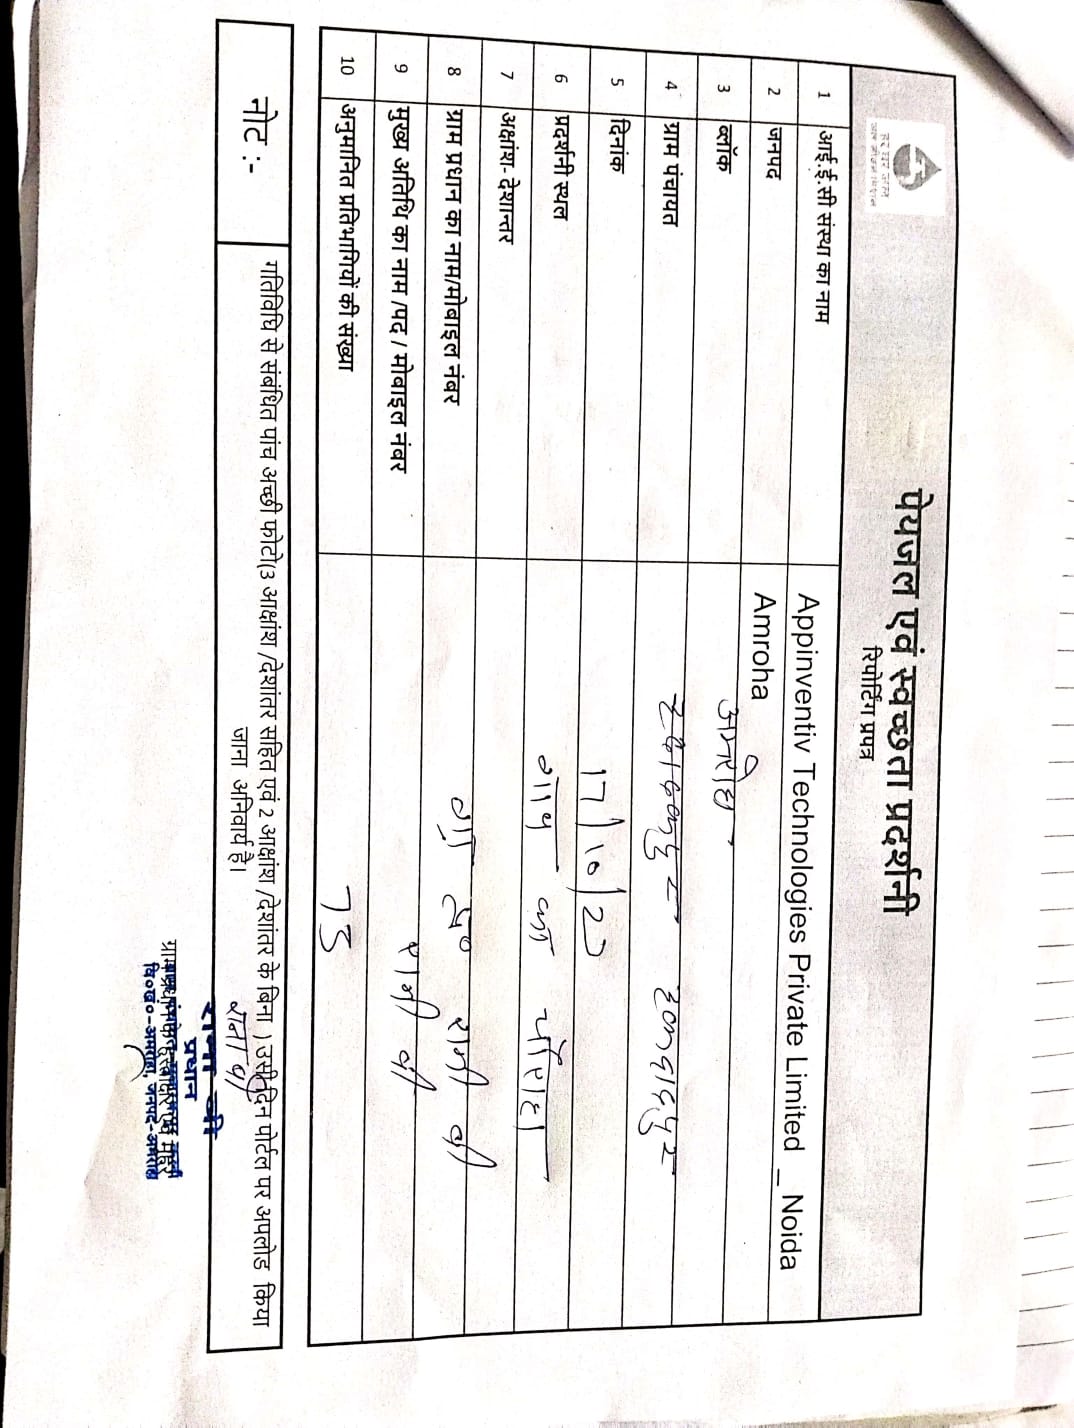 हर घर जल
जल जीवन मिशन
पेयजल एवं स्वच्छता प्रदर्शनी
रिपोर्टिंग प्रपत्र
1 आई.ई.सी संस्था का नाम Appinventiv Technologies Private Limited _ Noida
2 जनपद Amroha
3 ब्लॉक अमरोहा
4 ग्राम पंचायत
5 दिनांक
6 प्रदर्शनी स्थल
7 अक्षांश- देशान्तर
8 ग्राम प्रधान का नाम/मोबाइल नंबर
9 मुख्य अतिथि का नाम /पद / मोबाइल नंबर
10 अनुमानित प्रतिभागियों की संख्या
नोट :- गतिविधि से संबंधित पांच अच्छी फोटो(3 आक्षांश /देशांतर सहित एवं 2 आक्षांश /देशांतर के बिना ) उसी दिन पोर्टल पर अपलोड किया
जाना अनिवार्य है।
प्रधान
ग्राम प्रधान के हस्ताक्षर एवं मोहर
वि०ख०-अमरोहा, जनपद-अमरोहा